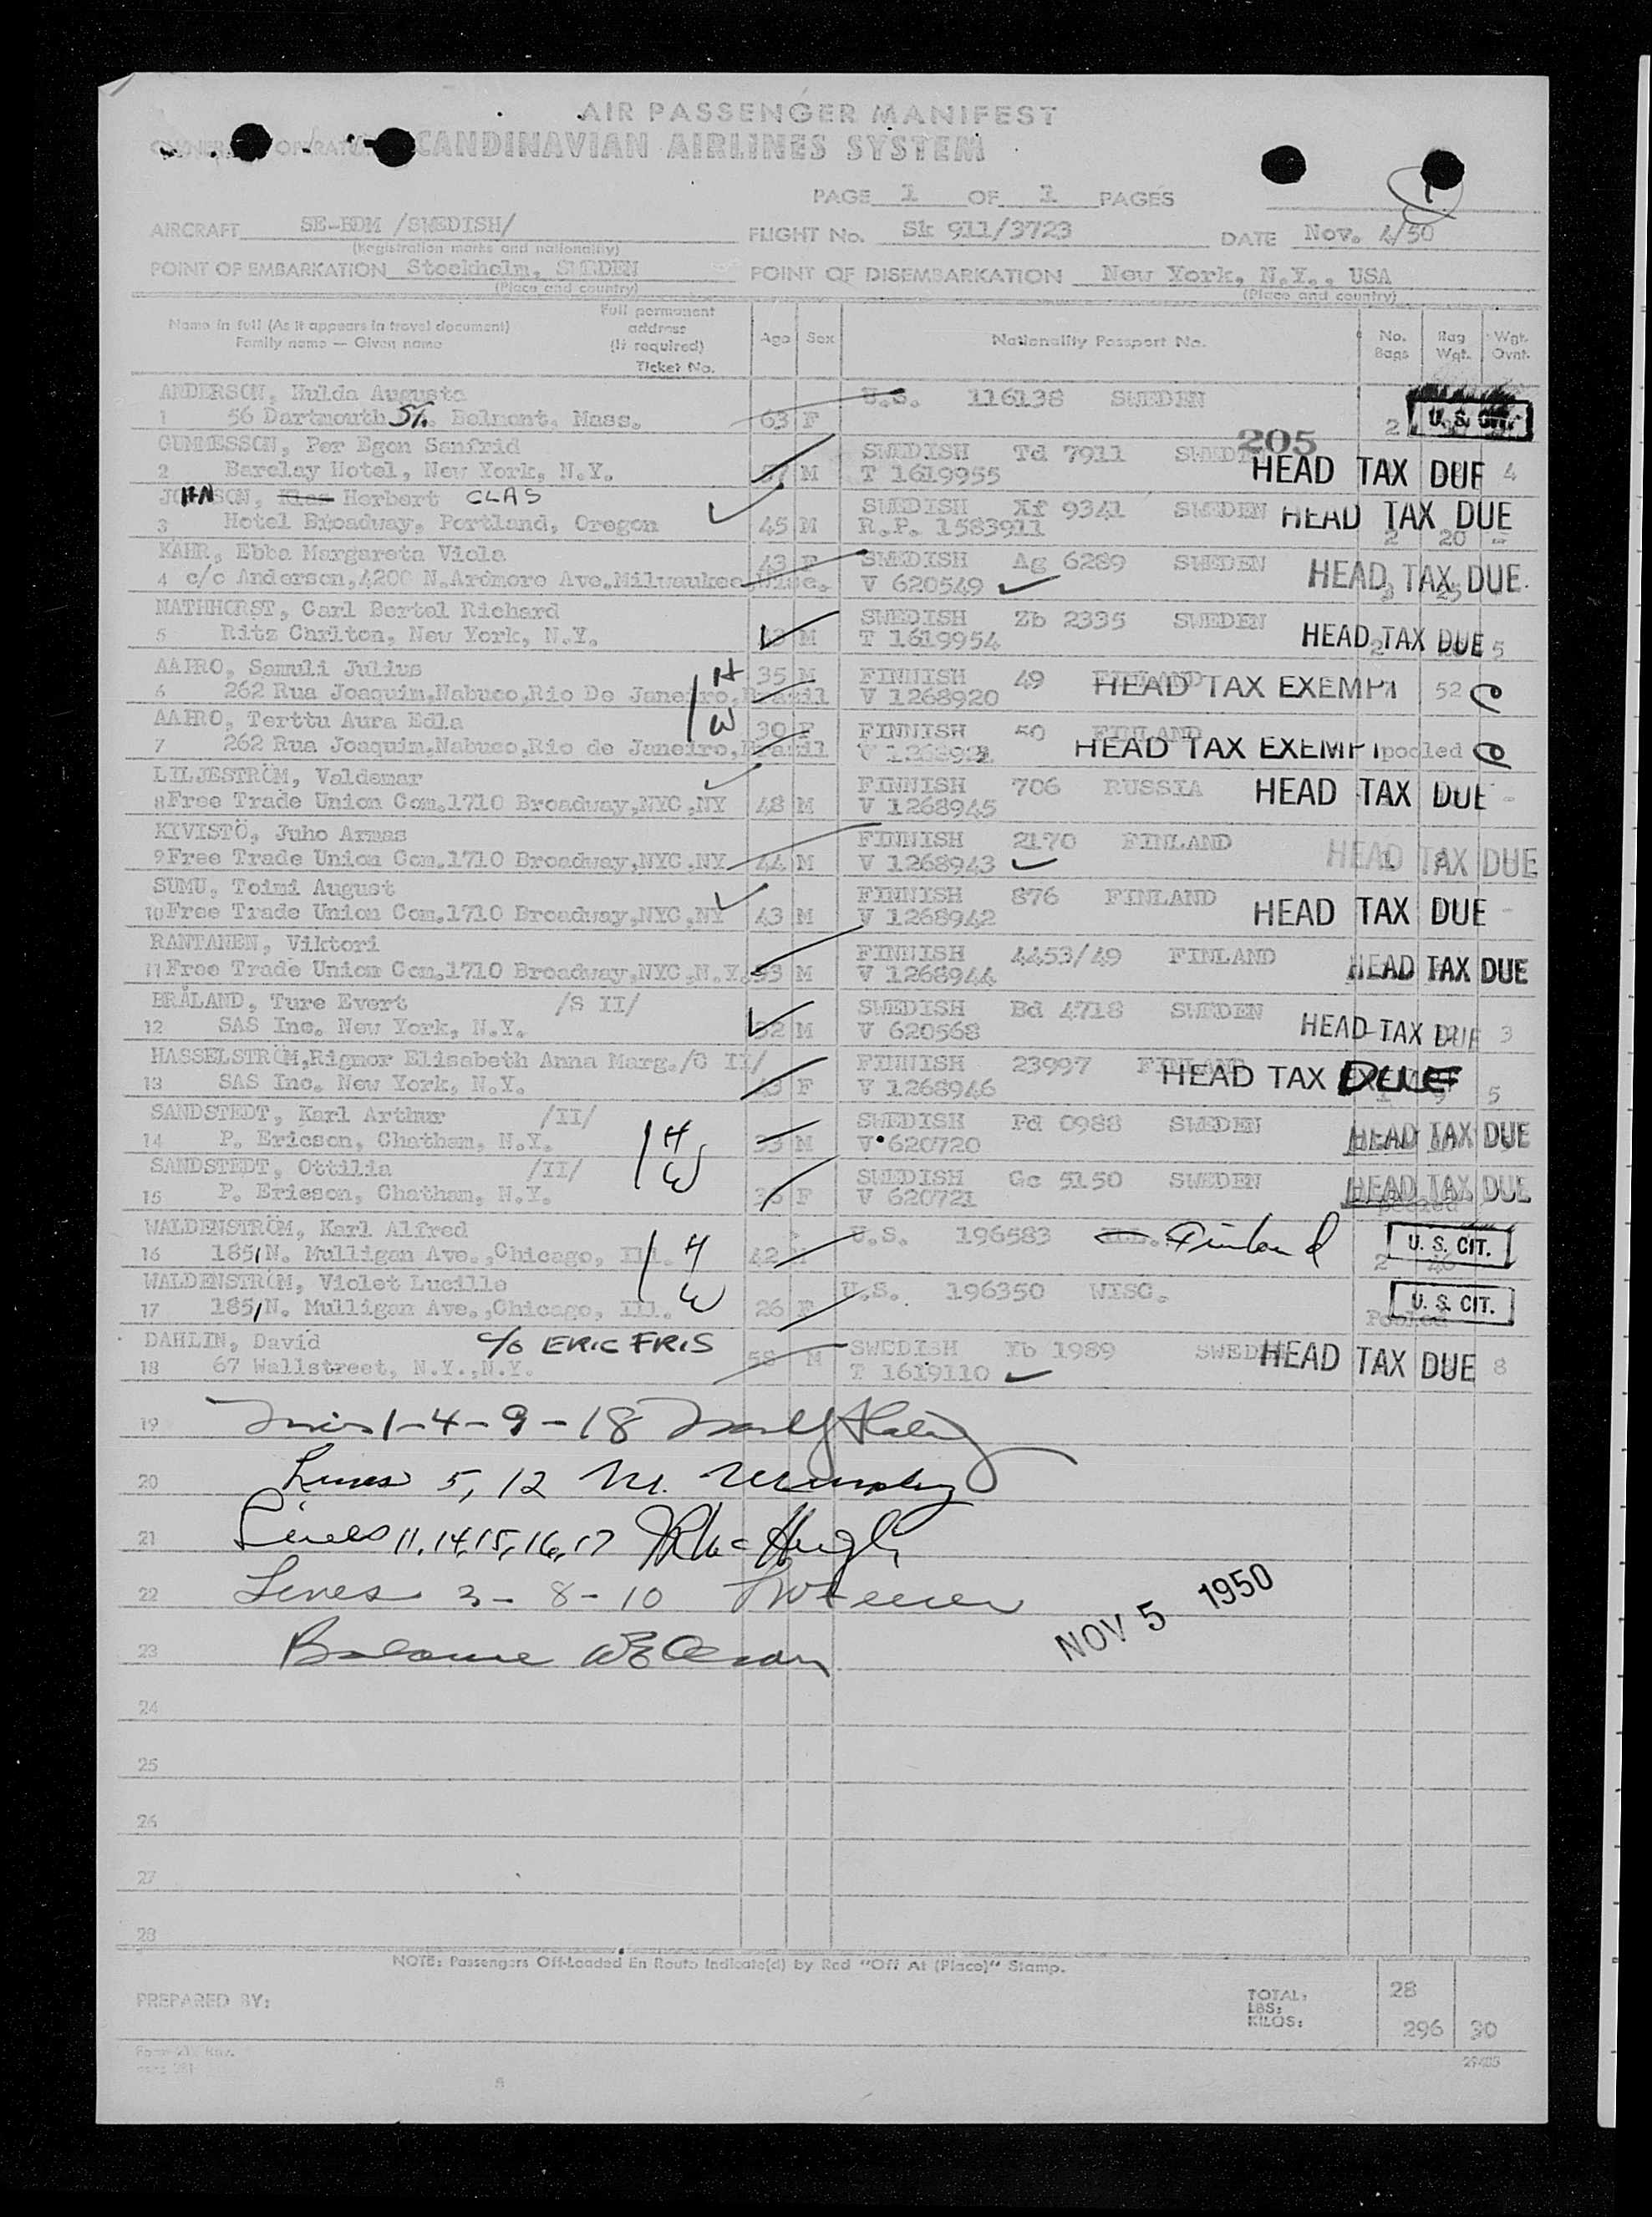 AIR PASSENGER MANIFEST
SCANDINAVIAN AIRLINES SYSTEM
PAGE 1 OF 1 PAGES
AIRCRAFT SE-BDM /SWEDISH/ FLIGHT No. Sk 911/3723 DATE Nov. 4/50
(Registration marks and nationality)
POINT OF EMBARKATION Stockholm, SWEDEN POINT OF DISEMBARKATION New York, N.Y., USA
(Place and country) (Place and country)
Name in full (As it appears in travel document) Full permanent address (If required) Age Sex Nationality Passport No. No. Bags Bag Wgt. Wgt. Ovnt.
Family name — Given name Ticket No.
ANDERSON, Hulda Augusta U.S. 116138 SWEDEN
1 56 Dartmouth St. Belmont, Mass. 63 F 2 U.S. CIT.
205
GUNNESSON, Per Egon Sanfrid SWEDISH Td 7911 SWEDEN
2 Barclay Hotel, New York, N.Y. M T 1619955 HEAD TAX DUE 4
JOHNSON, Klas Herbert CLAS SWEDISH Xf 9341 SWEDEN HEAD TAX DUE
3 Hotel Broadway, Portland, Oregon 45 M R.P. 1583911 2 20 -
KAHR, Ebba Margareta Viola 43 F SWEDISH Ag 6289 SWEDEN
4 c/o Anderson, 4200 N.Ardmore Ave.Milwaukee, Wisc. V 620549 HEAD TAX DUE
NATHHORST, Carl Bertel Richard SWEDISH Zb 2335 SWEDEN
5 Ritz Charlton, New York, N.Y. M T 1619954 HEAD TAX DUE 5
AAIRO, Samuli Julius H 35 M FINNISH 49 FINLAND HEAD TAX EXEMPT
6 262 Rua Joaquim,Nabuco,Rio De Janeiro,Brazil V 1268920 52
AAIRO, Terttu Aura Edla W 30 F FINNISH 50 FINLAND
7 262 Rua Joaquim,Nabuco,Rio de Janeiro,Brazil HEAD TAX EXEMPT pooled
LILJESTRÖM, Valdemar FINNISH 706 RUSSIA HEAD TAX DUE -
8 Free Trade Union Com.1710 Broadway,NYC,NY 48 M V 1268945
KIVISTÖ, Juho Armas FINNISH 2170 FINLAND
9 Free Trade Union Com.1710 Broadway,NYC.NY 44 M V 1268943 HEAD TAX DUE
SUMU, Toimi August FINNISH 876 FINLAND
10 Free Trade Union Com.1710 Broadway,NYC,NY 43 M V 1268942 HEAD TAX DUE -
RANTANEN, Viktori FINNISH 4453/49 FINLAND
11 Free Trade Union Com.1710 Broadway,NYC,N.Y. M V 1268944 HEAD TAX DUE
BRÅLAND, Ture Evert /S II/ SWEDISH Bd 4718 SWEDEN
12 SAS Inc. New York, N.Y. 32 M V 620568 HEAD TAX DUE 3
HASSELSTRÖM,Rigmor Elisabeth Anna Marg./C II/ FINNISH 23997 FINLAND
13 SAS Inc. New York, N.Y. F V 1268946 HEAD TAX DUE 5
SANDSTEDT, Karl Arthur /II/ H SWEDISH Fd 0988 SWEDEN
14 P. Ericson, Chatham, N.Y. 33 M V 620720 HEAD TAX DUE
SANDSTEDT, Ottilia /II/ W SWEDISH Gc 5150 SWEDEN
15 P. Ericson, Chatham, N.Y. F V 620721 HEAD TAX DUE pooled
WALDENSTRÖM, Karl Alfred H U.S. 196583 Finland
16 1851 N. Mulligan Ave.,Chicago, Ill. 42 2 U.S. CIT.
WALDENSTRÖM, Violet Lucille W U.S. 196350 WISC.
17 1851 N. Mulligan Ave.,Chicago, Ill. 26 F U.S. CIT. Pooled
DAHLIN, David c/o ERIC FRIS SWEDISH Yb 1989 SWEDEN
18 67 Wallstreet, N.Y.,N.Y. 58 M T 1619110 HEAD TAX DUE 8
19 1-4-9-18
20 Lines 5, 12 M. Murphy
21 Lines 11, 14, 15, 16, 17 McHugh
22 Lines 3-8-10
23 Balance
NOV 5 1950
24
25
26
27
28
NOTE: Passengers Off-Loaded En Route Indicate(d) by Red "Off At (Place)" Stamp.
PREPARED BY: TOTAL: 28
LBS:
KILOS: 296 30
29405